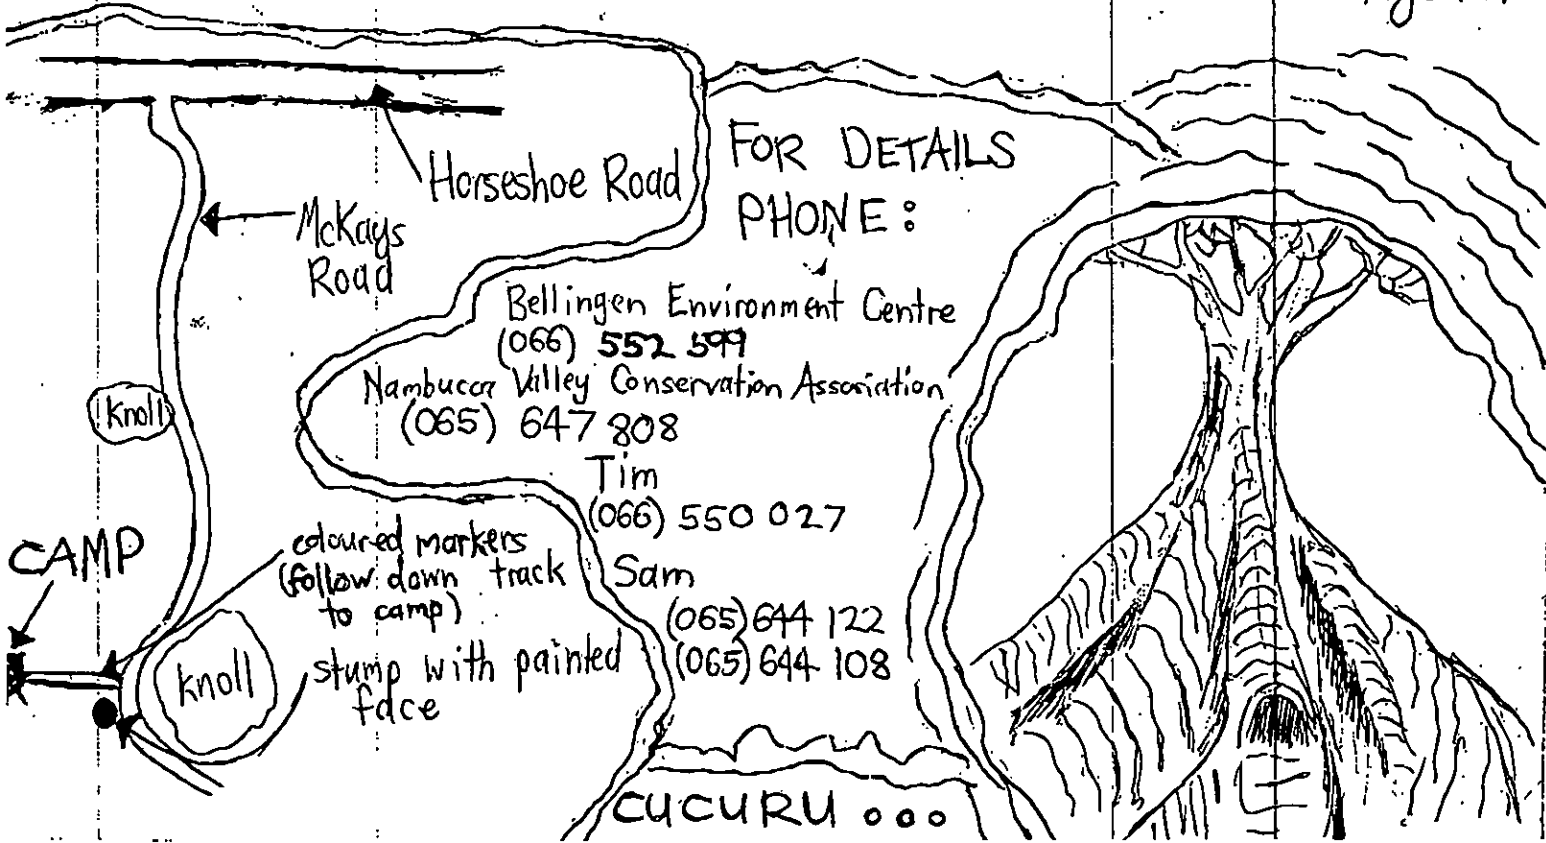 Horseshoe Road
McKays
Road
Knoll
CAMP
coloured markers
(follow down track
to camp)
Knoll
stump with painted
face
FOR DETAILS
PHONE:
Bellingen Environment Centre
(066) 552 599
Nambucca Valley Conservation Association
(065) 647 808
Tim
(066) 550 027
Sam
(065) 644 122
(065) 644 108
CUCURU ...